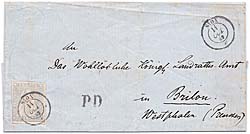 An
Das Wohllöbliche Königl. Landraths-Amt
in Brilon
Westphalen (Preussen)
PD